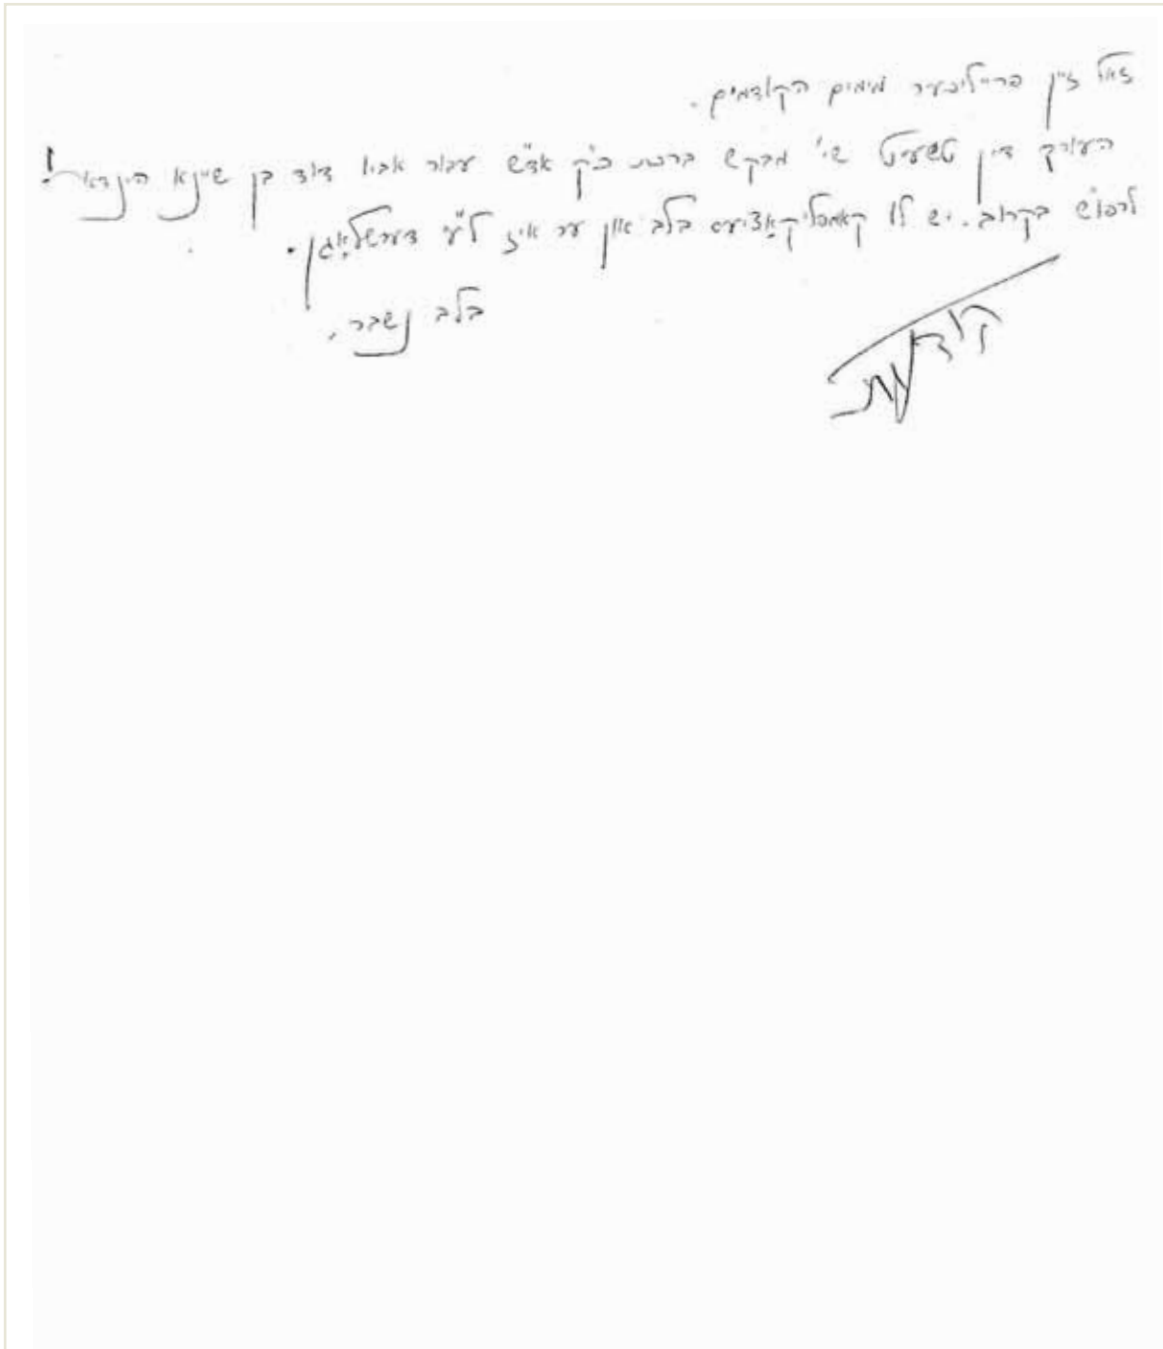 זאל זיין פרייליכער מימים הקודמים.
העורך דין טשעיט שי' מבקש ברכת כ"ק אד"ש עבור אביו דוד בן שיינא הינדא!
לרפו"ש בקרוב. יש לו קאמפליקאציעס בלב און ער איז ל"ע דערשלאָגן.
בלב נשבר,